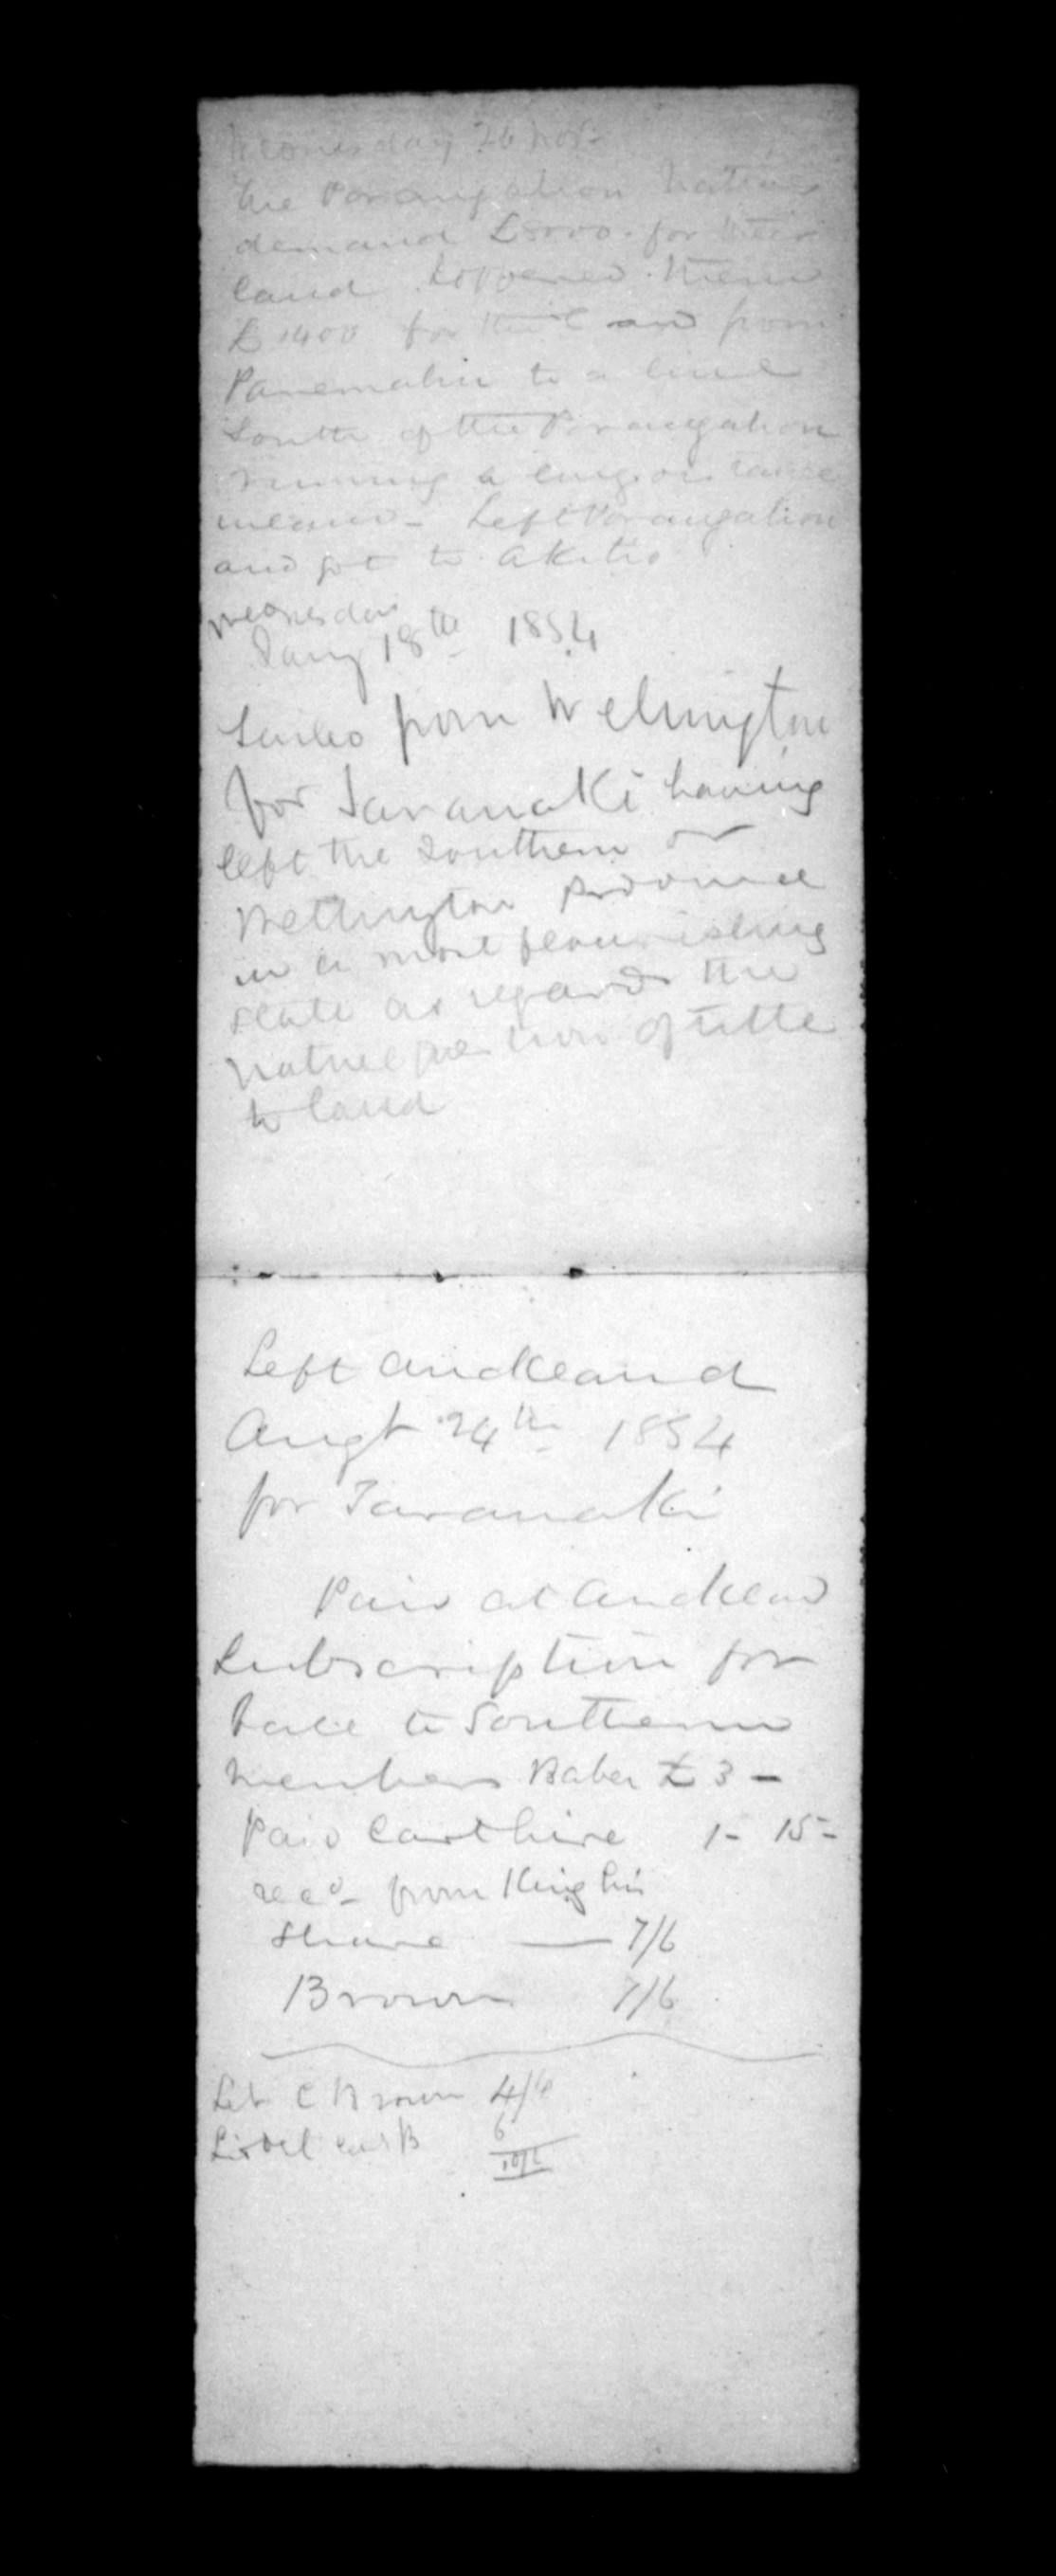 Wednesday 26 Nov.
The Porangahau Natives
demand £8000. for their
land. I offered them
£1400 for the land from
Parimahu to a line
South of the Porangahau
running a long distance
inland - Left Porangahau
and got to Akitio
Wednesday
Jany 18th 1854
Sailed from Wellington
for Taranaki having
left the Southern or
Wellington Province
in a most flourishing
state as regards the
native question of title
to land
Left Auckland
Augt 24th 1854
for Taranaki
Paid at Auckland
Subscription for
Ball to Southern
members Baber £3 -
Paid Cart hire 1- 15-
recd from King his
share — 7/6
Brown 7/6
C Brown 4/6
6
10/6